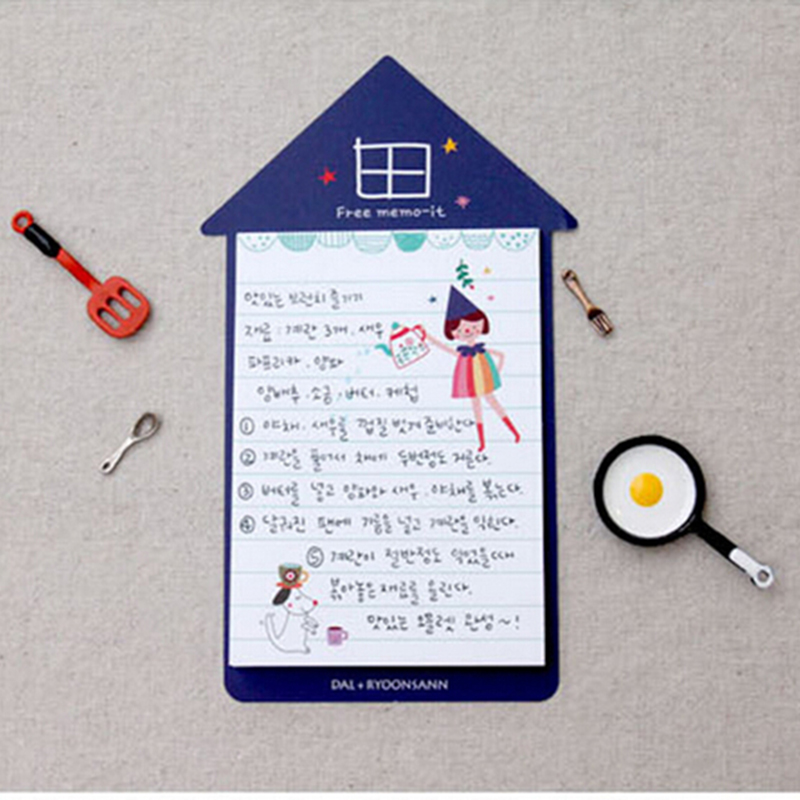 Free memo-it
맛있는 브런치 즐기기
재료 : 계란 3개 . 새우
파프리카 . 양파
양배추 . 소금 . 버터 . 케첩
① 야채 . 새우를 껍질 벗겨 준비한다
② 계란을 풀어서 체에 두번정도 거른다.
③ 버터를 넣고 양파와 새우 . 야채를 볶는다.
④ 달궈진 팬에 기름을 넣고 계란을 익힌다.
⑤ 계란이 절반정도 익었을때
볶아놓은 재료를 올린다.
맛있는 오믈렛 완성~!
DAL + RYOONSANN